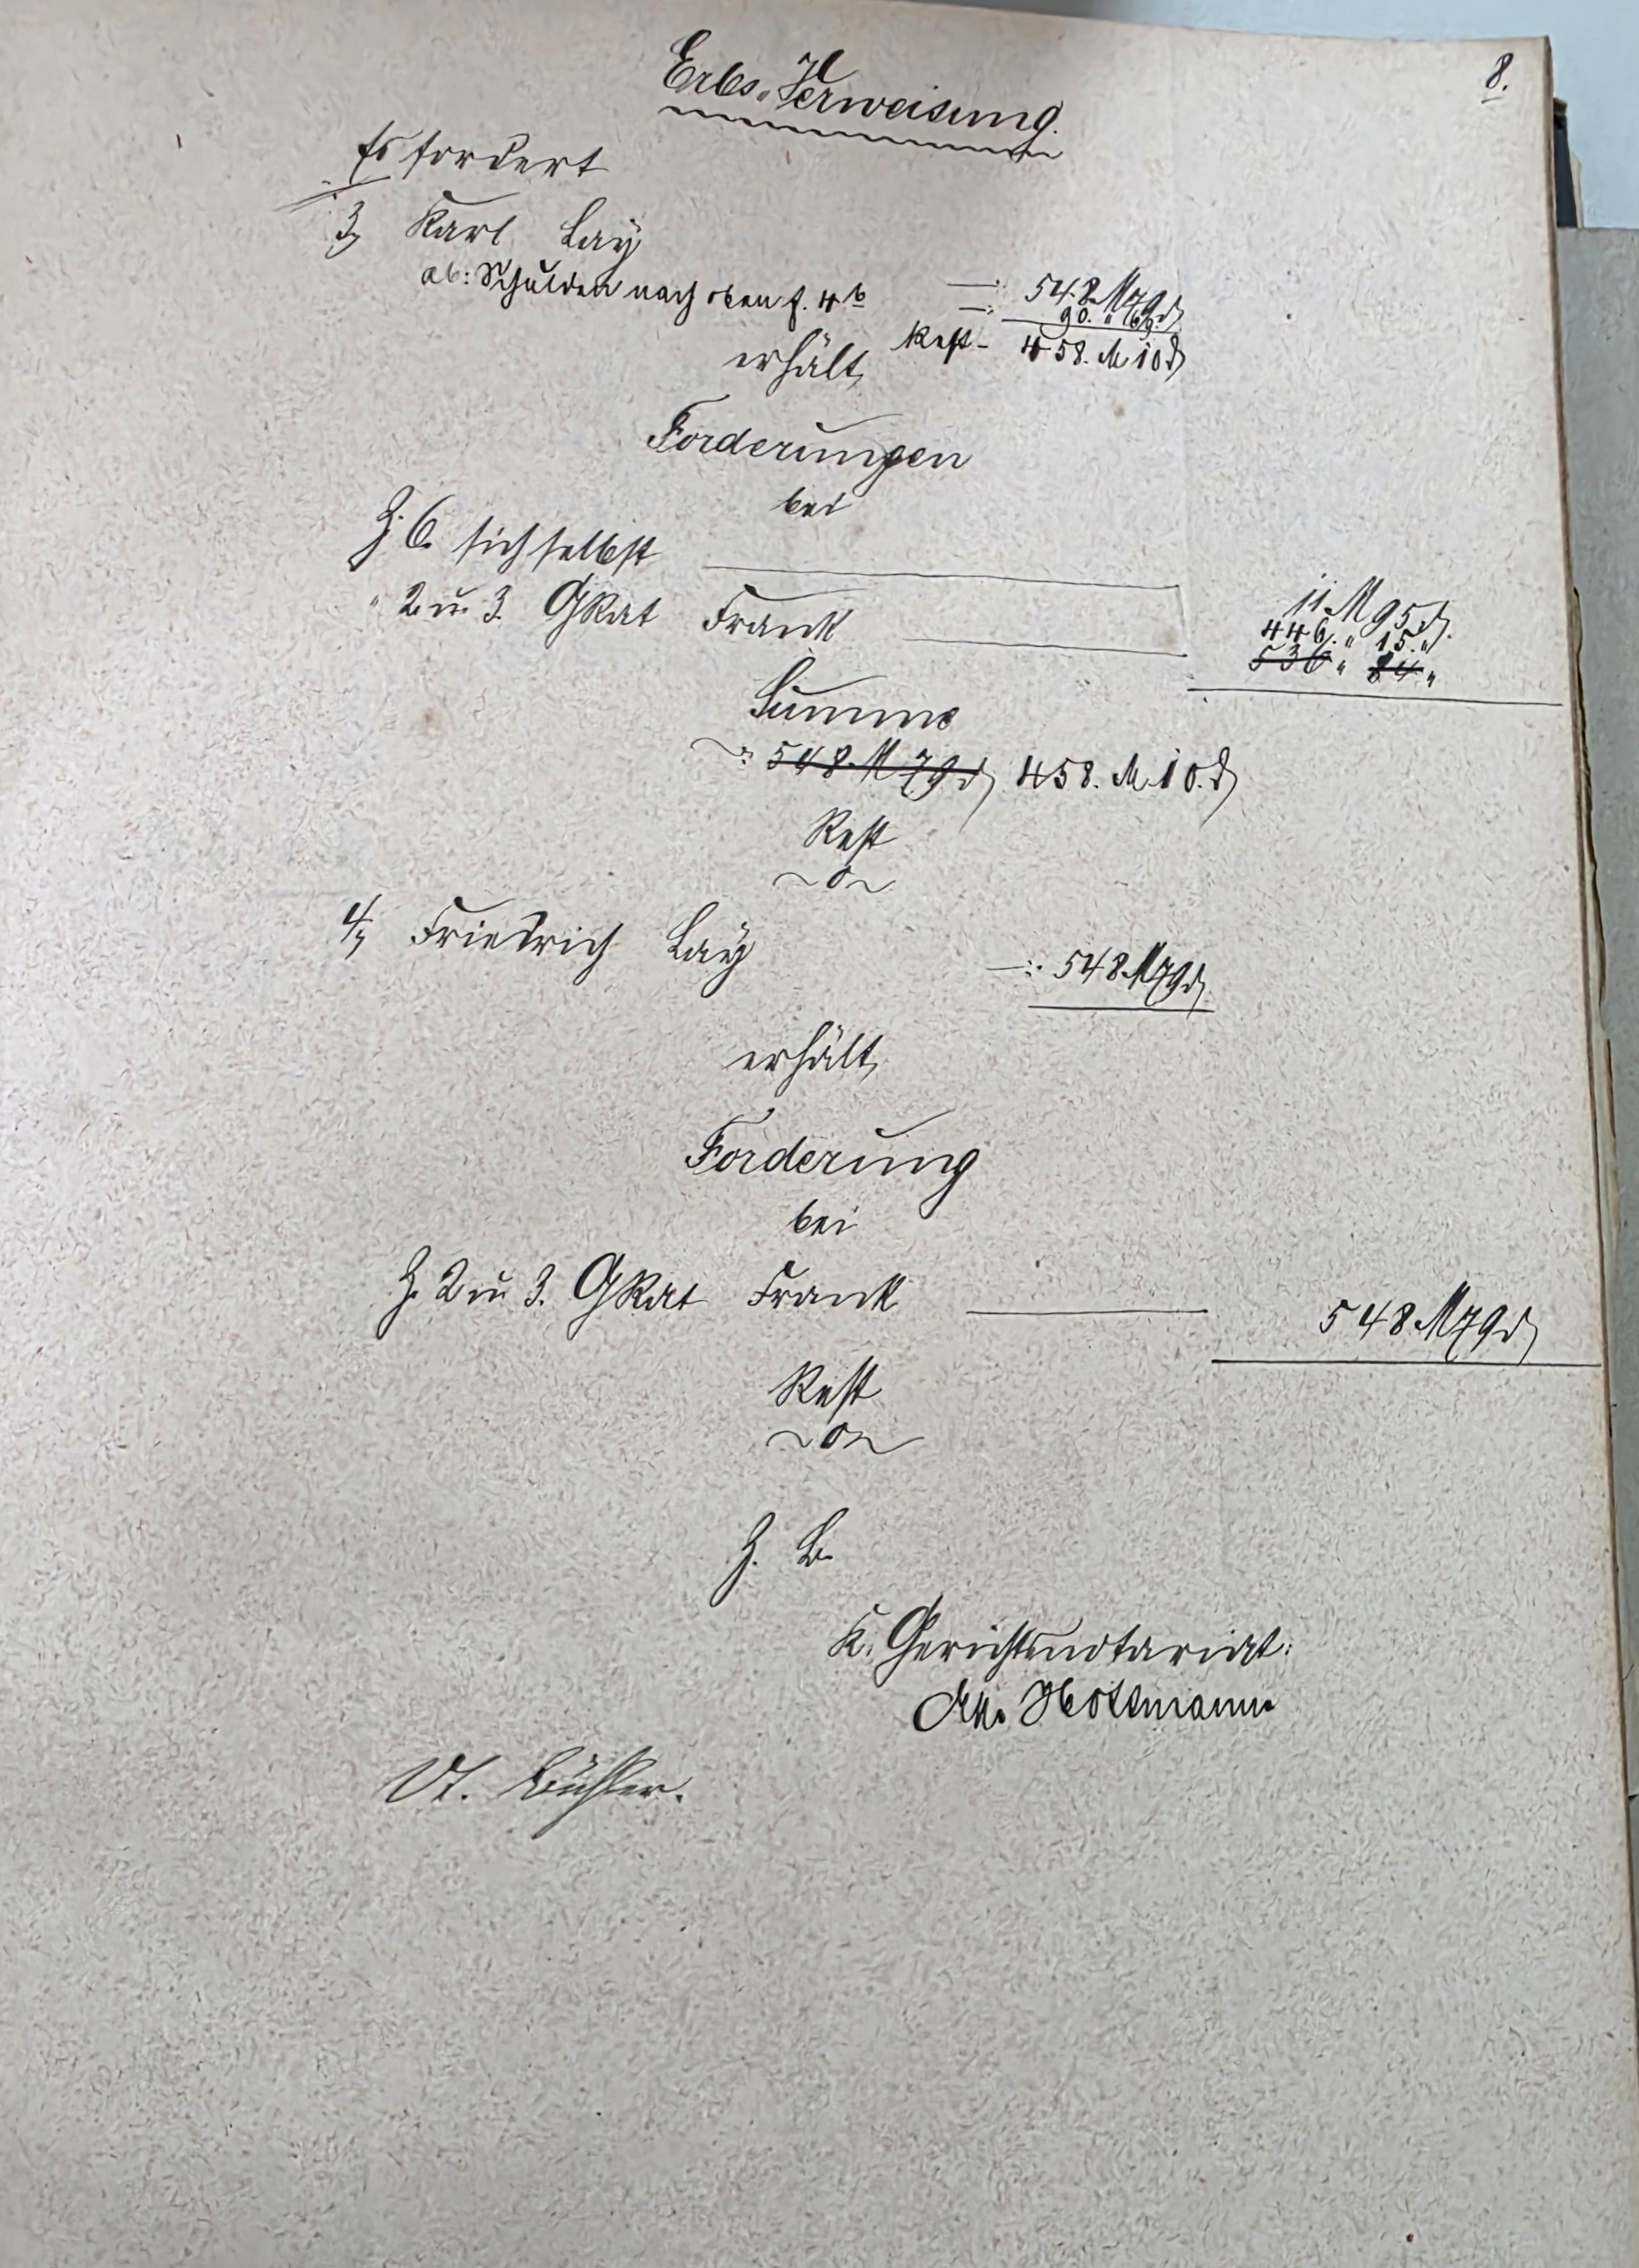 8.
Erbs-Verweisung.
Es fordert
3, Karl Lay
-: 548 M 79 d
ab: Schulden nach oben f. 4 b -: 90. " 69.
Rest- 458. M 10 d
erhält,
Forderungen
bei
Z. 6. sich selbst 11 M 95 d.
" 2 u 3. GRat Frank 446. " 15. "
536 " 84 "
Summe
-: 548 M 79 d 458. M 10. d
Rest
~0~
4, Friedrich Lay -: 548 M 79 d
erhält,
Forderung
bei
Z. 2 u 3. GRat Frank 548 M 79 d
Rest
~0~
Z. B.
K. Gerichtsnotariat:
Hottmann
Vt. Bühler.